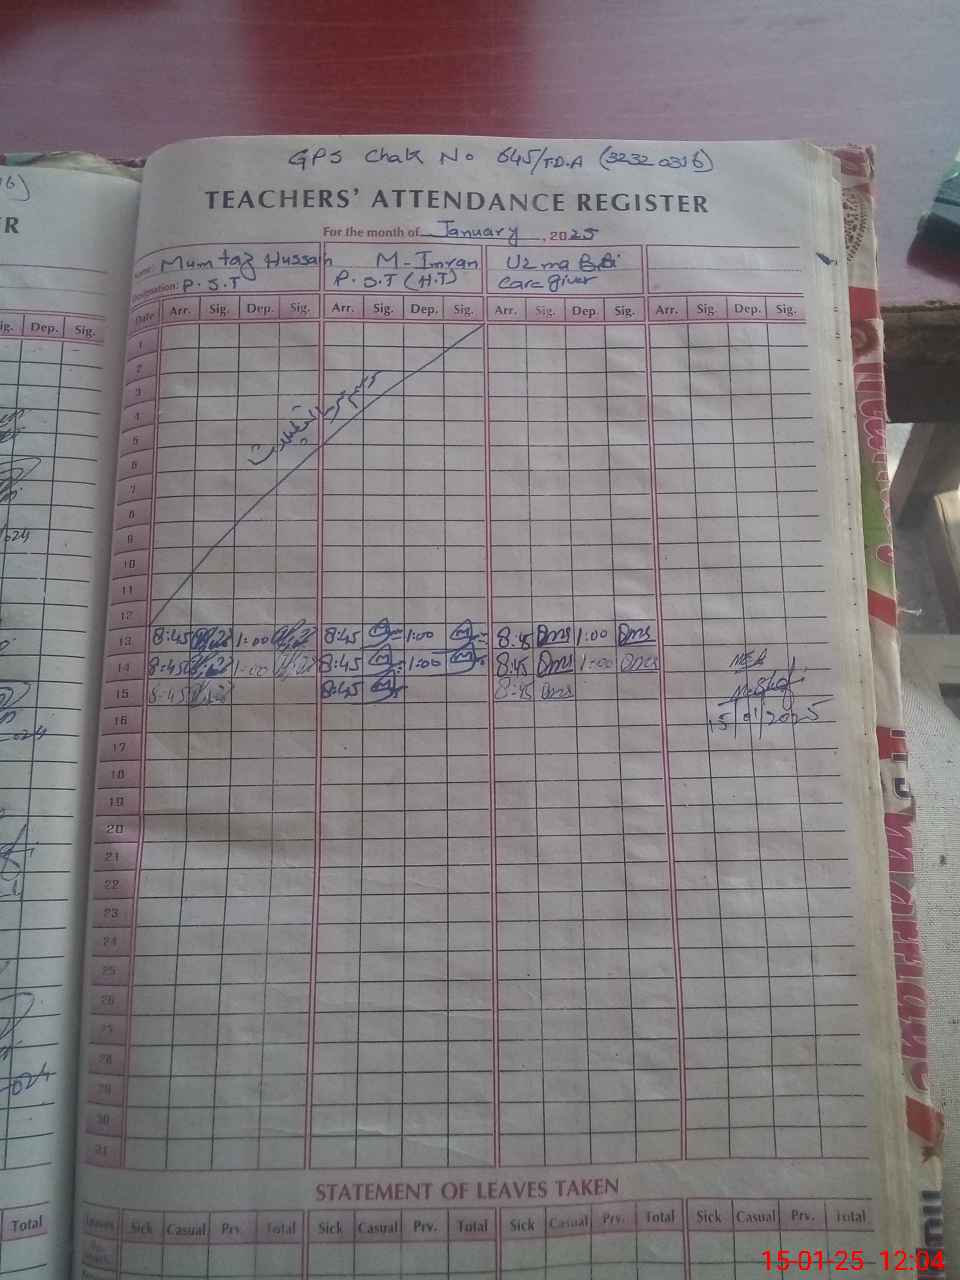 GPS Chak No 645/TD.A (32320316)
TEACHERS' ATTENDANCE REGISTER
For the month of January, 2025
Name: Mumtaz Hussain M-Imran Uzma Bibi
Designation: P.S.T P.S.T (H.T) Care giver
Date Arr. Sig. Dep. Sig. Arr. Sig. Dep. Sig. Arr. Sig. Dep. Sig. Arr. Sig. Dep. Sig.
1
2
3
4
5
6
7
8
9
10
11
12
13 8:45 1:00 8:45 1:00 8:45 1:00
14 8:45 1:00 8:45 1:00 8:45 1:00
15 8:45 8:45 8:45
MEA
15/01/2025
16
17
18
19
20
21
22
23
24
25
26
27
28
29
30
31
STATEMENT OF LEAVES TAKEN
Leaves Sick Casual Prv. Total Sick Casual Prv. Total Sick Casual Prv. Total Sick Casual Prv. Total
Dep. Sig.
Total
15-01-25 12:04